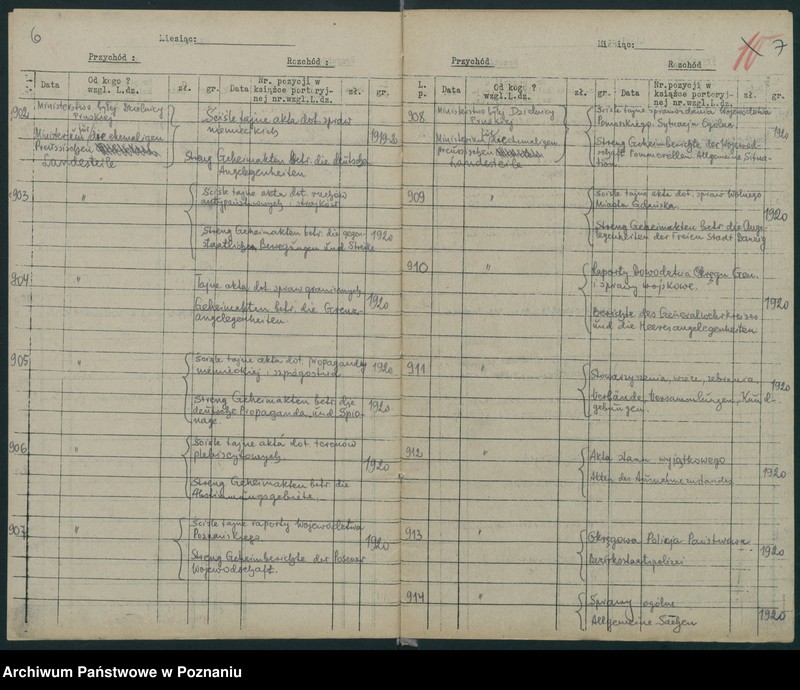 6
Miesiąc:
Przychód : Rozchód :
Data Od kogo ? wzgl. L.dz. zł. gr. Data Nr. pozycji w książce portoryjnej nr.wzgl.L.dz. zł. gr.
902 Ministerstwo byłej Dzielnicy
Pruskiej
Ministerium für die ehemaligen
Preussischen
Landesteile
Ściśle tajne akta dot. spraw
niemieckich 1919-2
Streng Geheimakten betr. die deutschen
Angelegenheiten
903 " Ściśle tajne akta dot. ruchów
antypaństwowych i strajków
Streng Geheimakten betr. die gegen-
staatlichen Bewegungen und Streike 1920
904 " Tajne akta dot. spraw granicznych
Geheimakten betr. die Grenz-
angelegenheiten 1920
905 " Ściśle tajne akta dot. propagandy
niemieckiej i szpiegostwa 1920
Streng Geheimakten betr. die
deutsche Propaganda und Spio-
nage. 1920
906 " Ściśle tajne akta dot. terenów
plebiscytowych. 1920
Streng Geheimakten betr. die
Abstimmungsgebiete.
907 " Ściśle tajne raporty Województwa
Poznańskiego 1920
Streng Geheimberichte der Posener
Wojewodschaft.
7
Miesiąc:
Przychód Rozchód
L. p. Data Od kogo ? wzgl. L.dz. zł. gr. Data Nr.pozycji w książce portoryjnej nr.wzgl.L.dz. zł. gr.
908 Ministerstwo był. Dzielnicy
Pruskiej
Ministerium für die ehemaligen
preussischen
Landesteile
Ściśle tajne sprawozdania Województwa
Pomorskiego. Sytuacja Ogólna. 1920
Streng Geheimberichte der Wojewod-
schaft Pommerellen. Allgemeine Situa-
tion.
909 " Ściśle tajne akta dot. spraw Wolnego
Miasta Gdańska. 1920
Streng Geheimakten betr. die Ange-
legenheiten der Freien Stadt Danzig
910 " Raporty Dowództwa Okręgu Gen.
i sprawy wojskowe. 1920
Berichte des Generalwehrkreises
und die Heeresangelegenheiten
911 " Stowarzyszenia, wiece, zebrania 1920
Verbände, Versammlungen, Kund-
gebungen.
912 " Akta stanu wyjątkowego
Akten des Ausnahmezustandes 1920
913 " Okręgowa Policja Państwowa
Bezirksstaatspolizei 1920
914 " Sprawy ogólne
Allgemeine Sachen 1920
Archiwum Państwowe w Poznaniu